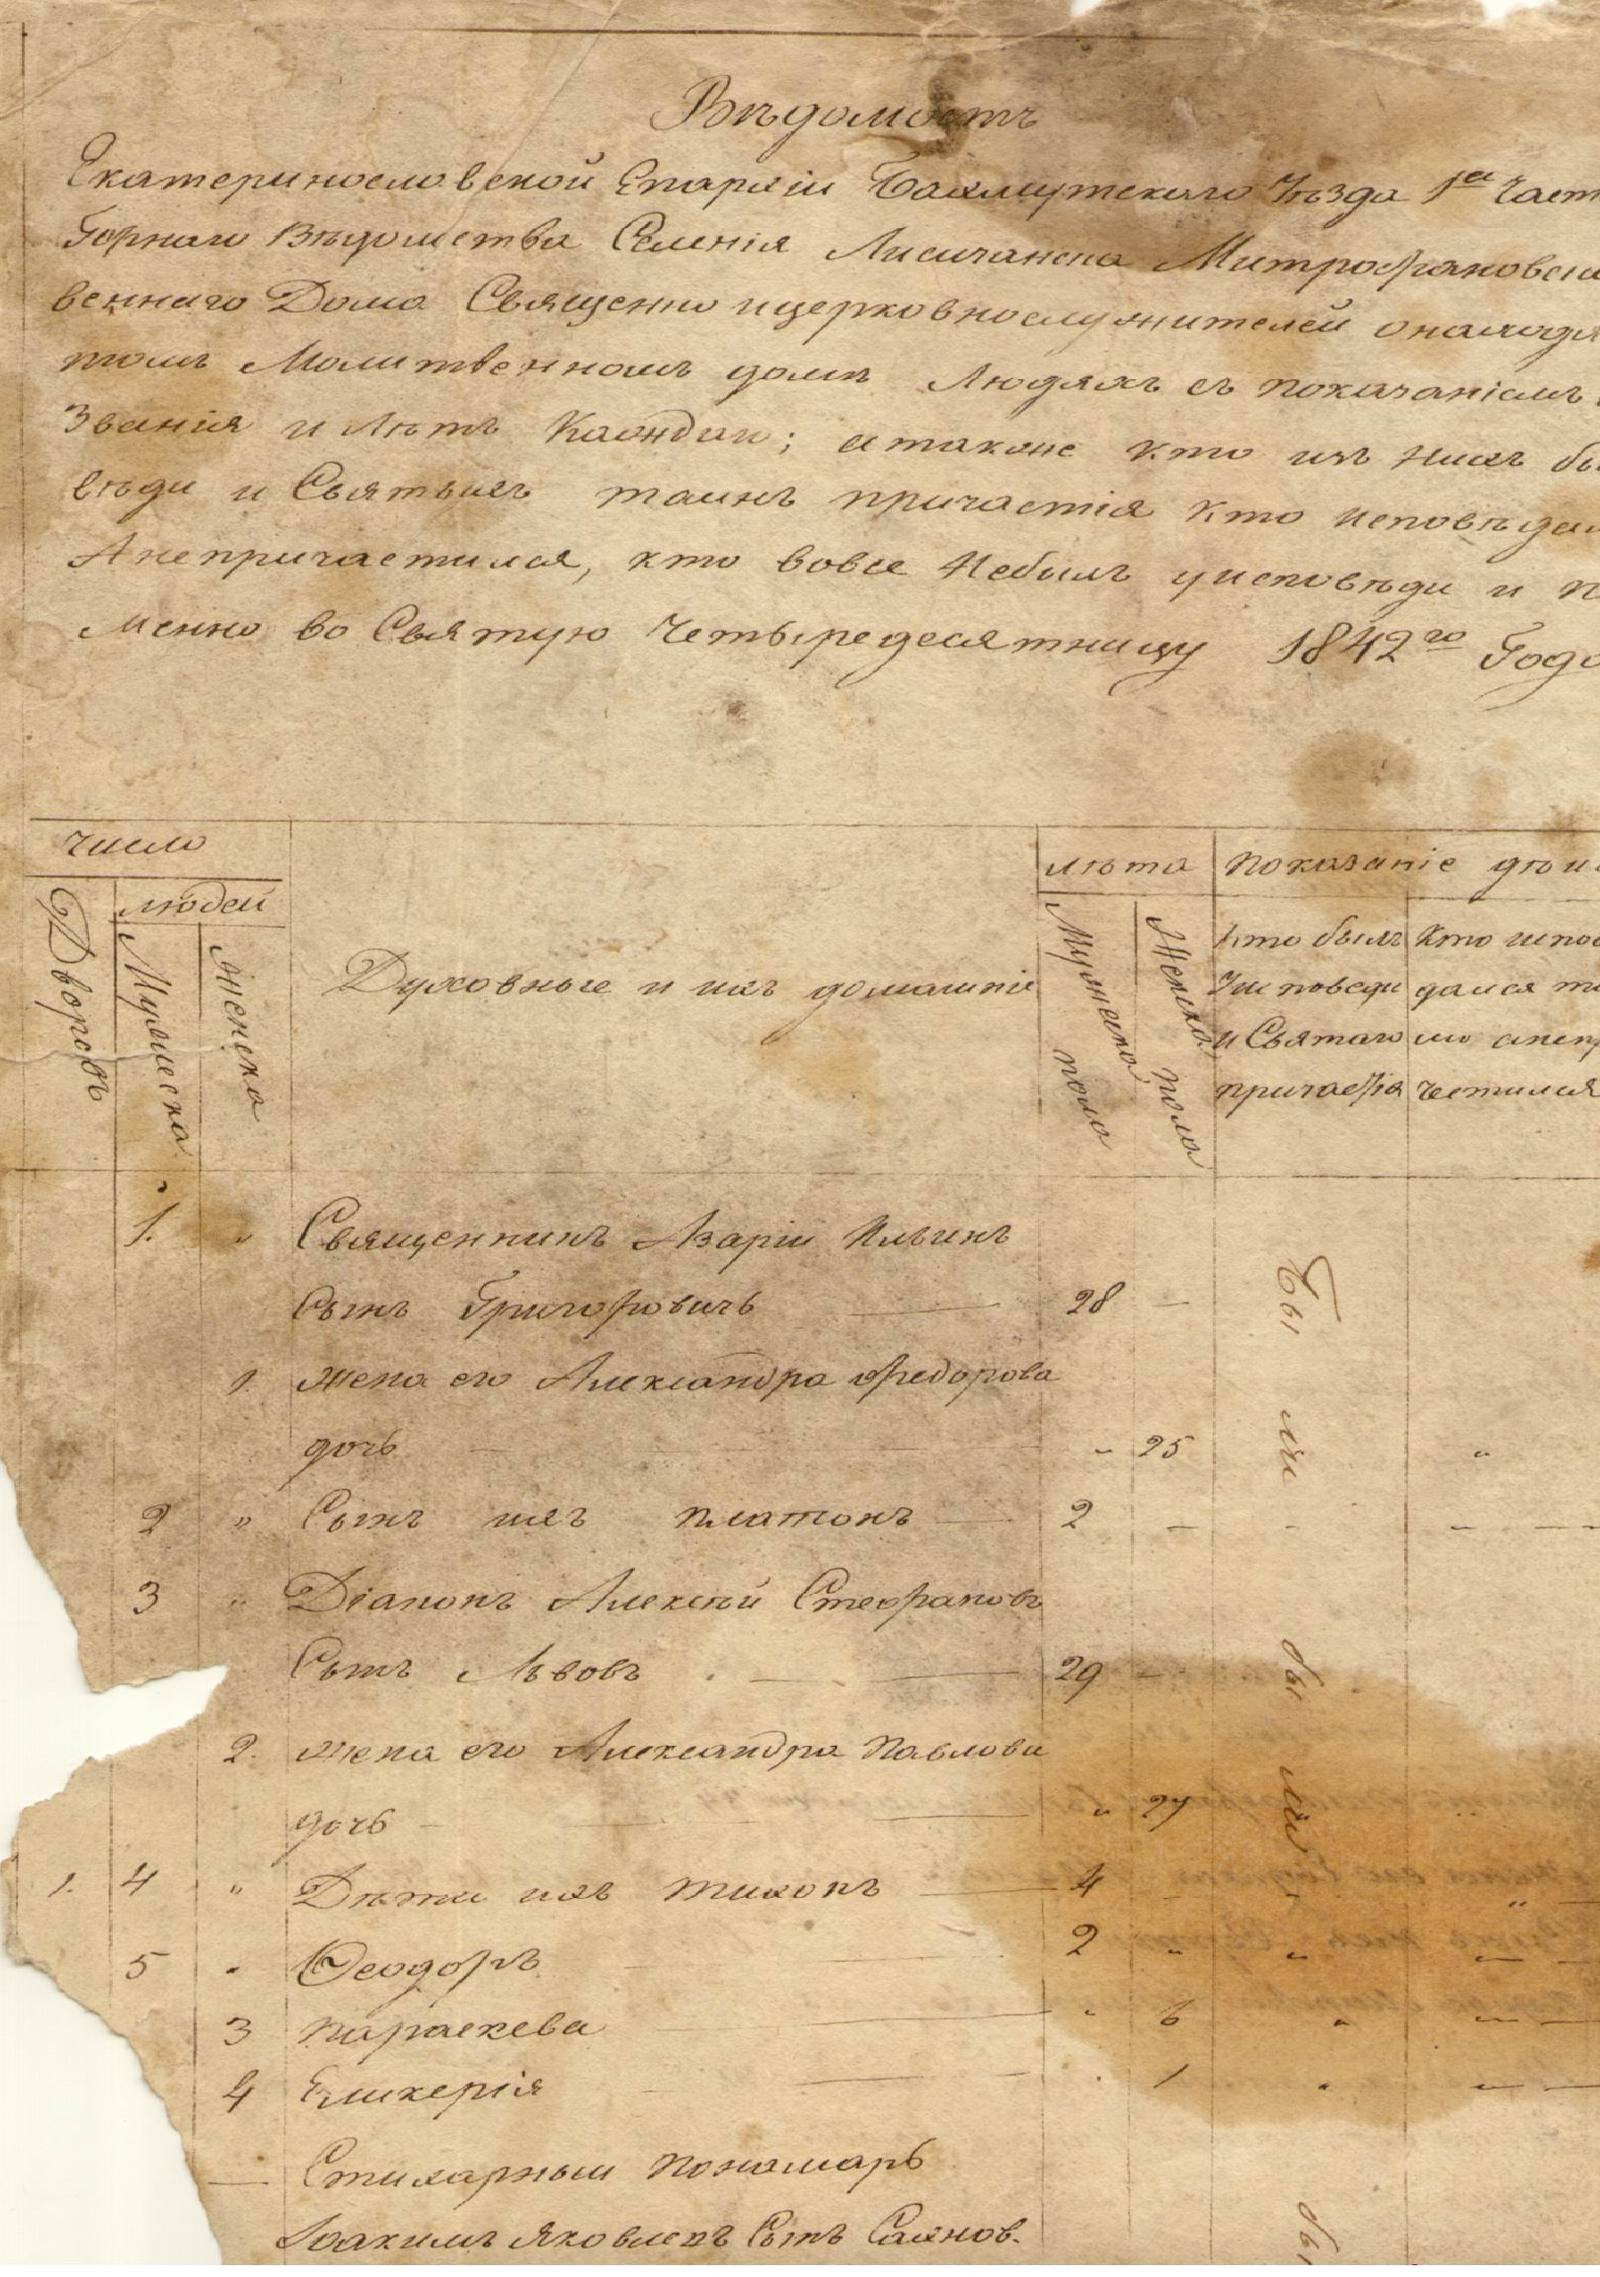 Вѣдомость
Екатеринославской Епархіи Бахмутскаго Уѣзда 1й Част
Горнаго Вѣдомства Селенія Лисичанска Митрофановска
веннаго Дома Священно ицерковнослужителей онаходя
томъ Молитвенномъ домѣ Людяхъ съ показаніемъ
Званія и Лѣтъ Каждаго; атакже кто изъ нихъ бы
вѣди и Святыхъ таинъ причастія кто исповѣдал
Анепричастился, кто вовсе Небылъ уисповѣди и п
менно во Святую Четыредесятницу 1842го Года
число
людей
Дворовъ
Мужеска
женска
Духовные и ихъ домашніе
лѣта
Мужеска пола
Женска пола
Показаніе дѣи
Кто былъ
Уисповеди
и Святаго
причастія
Кто испов
дался то
ко анепр
частился
1. „ Священникъ Азарій Ильинъ
Сынъ Григоровичъ — 28 —
Бы ли
1. жена его Александра Федорова
дочь — „ 25 „
2 „ Сынъ ихъ Платонъ — 2 — - — —
3 „ Діаконъ Алексѣй Стефановъ
Сынъ Львовъ — 29 —
бы ли
2. жена его Александра Павлова
дочь — „ 27 „
1. 4 „ Дѣти ихъ Тихонъ — 4 - - „ —
5 „ Ѳеодоръ 2 „ „ — —
3 Параскева — „ 6 „ — —
4 Гликерія — . 1 „ — —
— Стихарный Пономарь
Іоакимъ Яковлевъ Сынъ Саенов.
бы